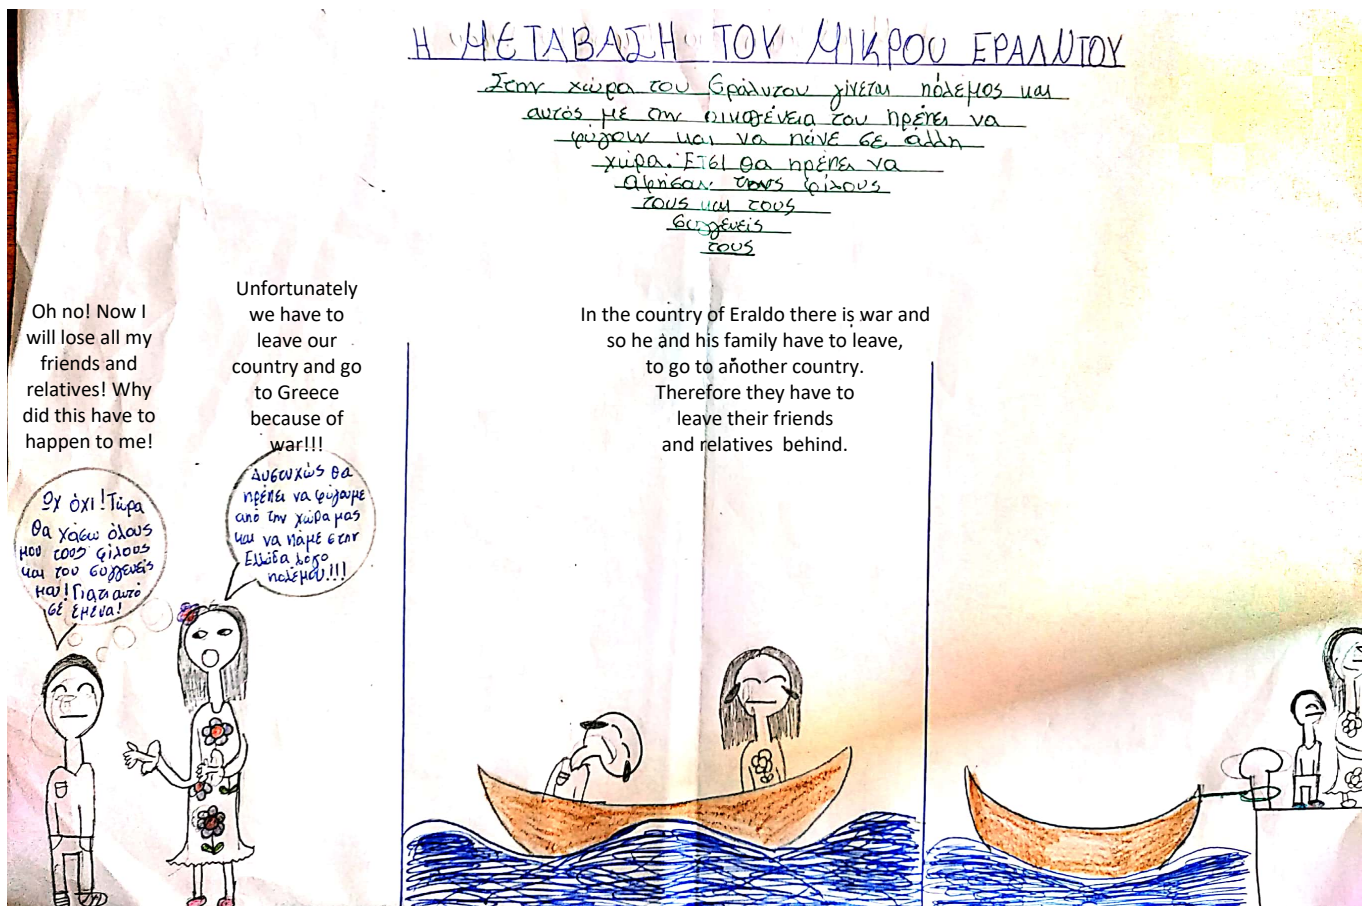 Η ΜΕΤΑΒΑΣΗ ΤΟΥ ΜΙΚΡΟΥ ΕΡΑΛΝΤΟΥ
Στην χώρα του Εράλντου γίνεται πόλεμος και
αυτός με την οικογένεια του πρέπει να
φύγουν και να πάνε σε άλλη
χώρα. Ετσι θα πρέπει να
αφήσουν τους φίλους
τους και τους
συγγενείς
τους
Oh no! Now I
will lose all my
friends and
relatives! Why
did this have to
happen to me!
Unfortunately
we have to
leave our
country and go
to Greece
because of
war!!!
In the country of Eraldo there is war and
so he and his family have to leave,
to go to another country.
Therefore they have to
leave their friends
and relatives behind.
Ωχ όχι! Τώρα
θα χάσω όλους
μου τους φίλους
και του συγγενείς
μου! Γιατι αυτό
σε εμένα!
Δυστυχώς θα
πρέπει να φύγουμε
από την χώρα μας
και να πάμε στην
Ελλάδα λόγο
πολέμου!!!